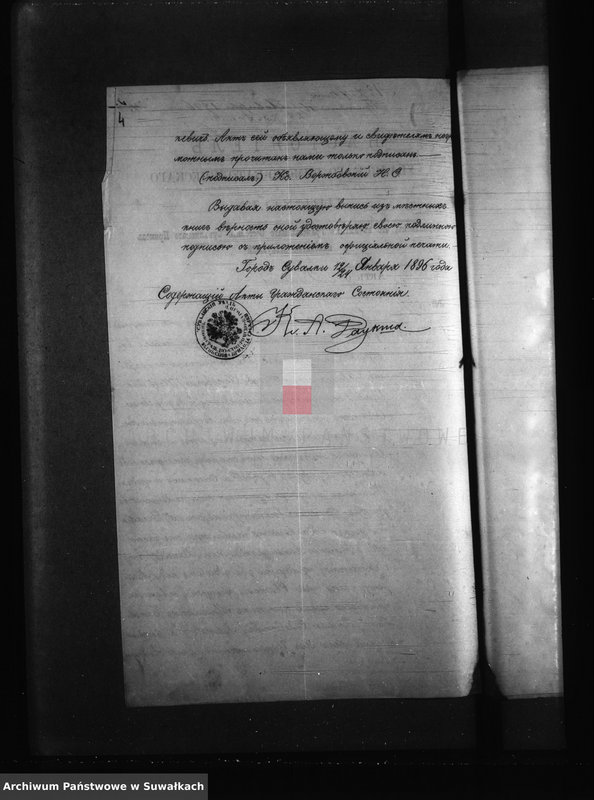 4
кевичъ. Актъ сей объявляющему и свидѣтелямъ негра
мотнымъ прочитанъ нами только подписанъ.—
(подписалъ) Кс.
Выдавая настоящую выпись изъ мѣстныхъ
книгъ вѣрность оной удостовѣряю своею подлинною
подписью съ приложеніемъ оффиціальной печати.
Городъ Сувалки 12/24 Января 1896 года
Содержащій Акты Гражданскаго Состоянія.
Кс. А.
Archiwum Państwowe w Suwałkach